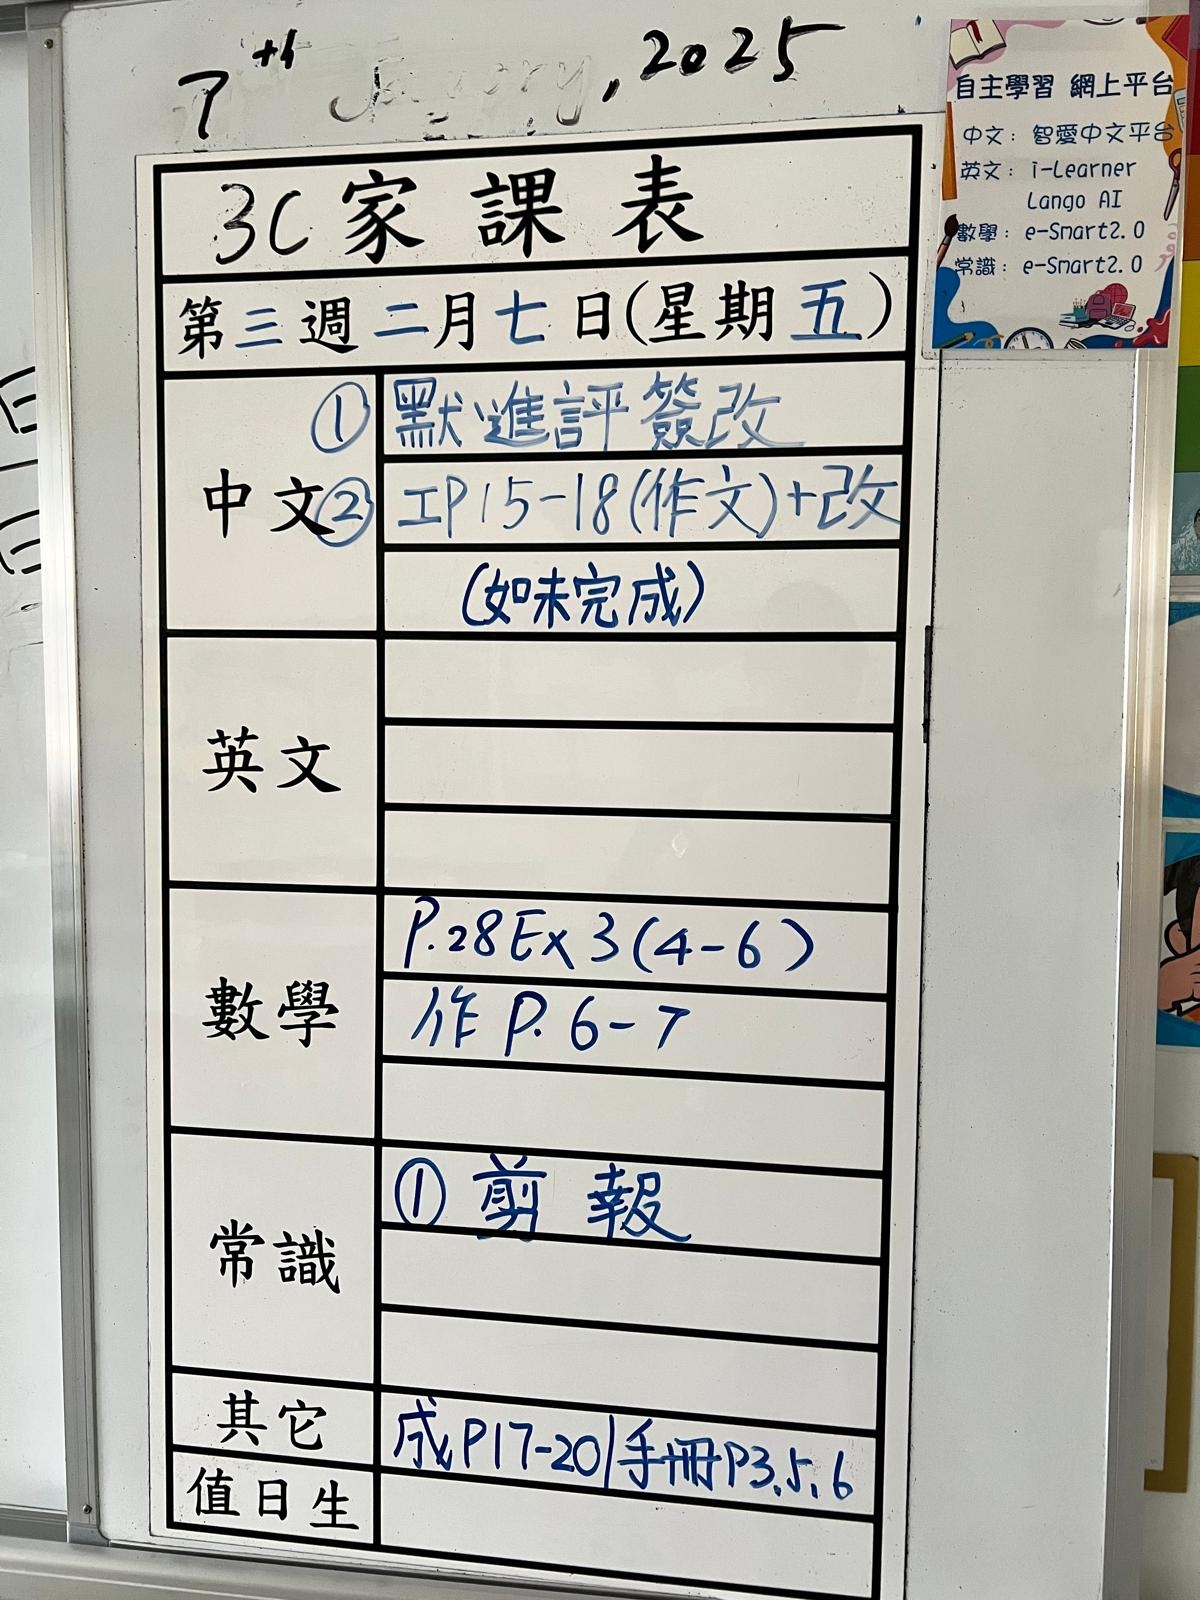 7th January, 2025
3C家課表
第三週二月七日(星期五)
中文
① 默進評簽改
② 工P15-18(作文)+改
(如未完成)
英文
數學
P.28Ex3(4-6)
作 P.6-7
常識
① 剪報
其它
成P17-20|手冊P3,5,6
值日生
自主學習 網上平台
中文：智愛中文平台
英文：i-Learner
Lango AI
數學：e-Smart2.0
常識：e-Smart2.0